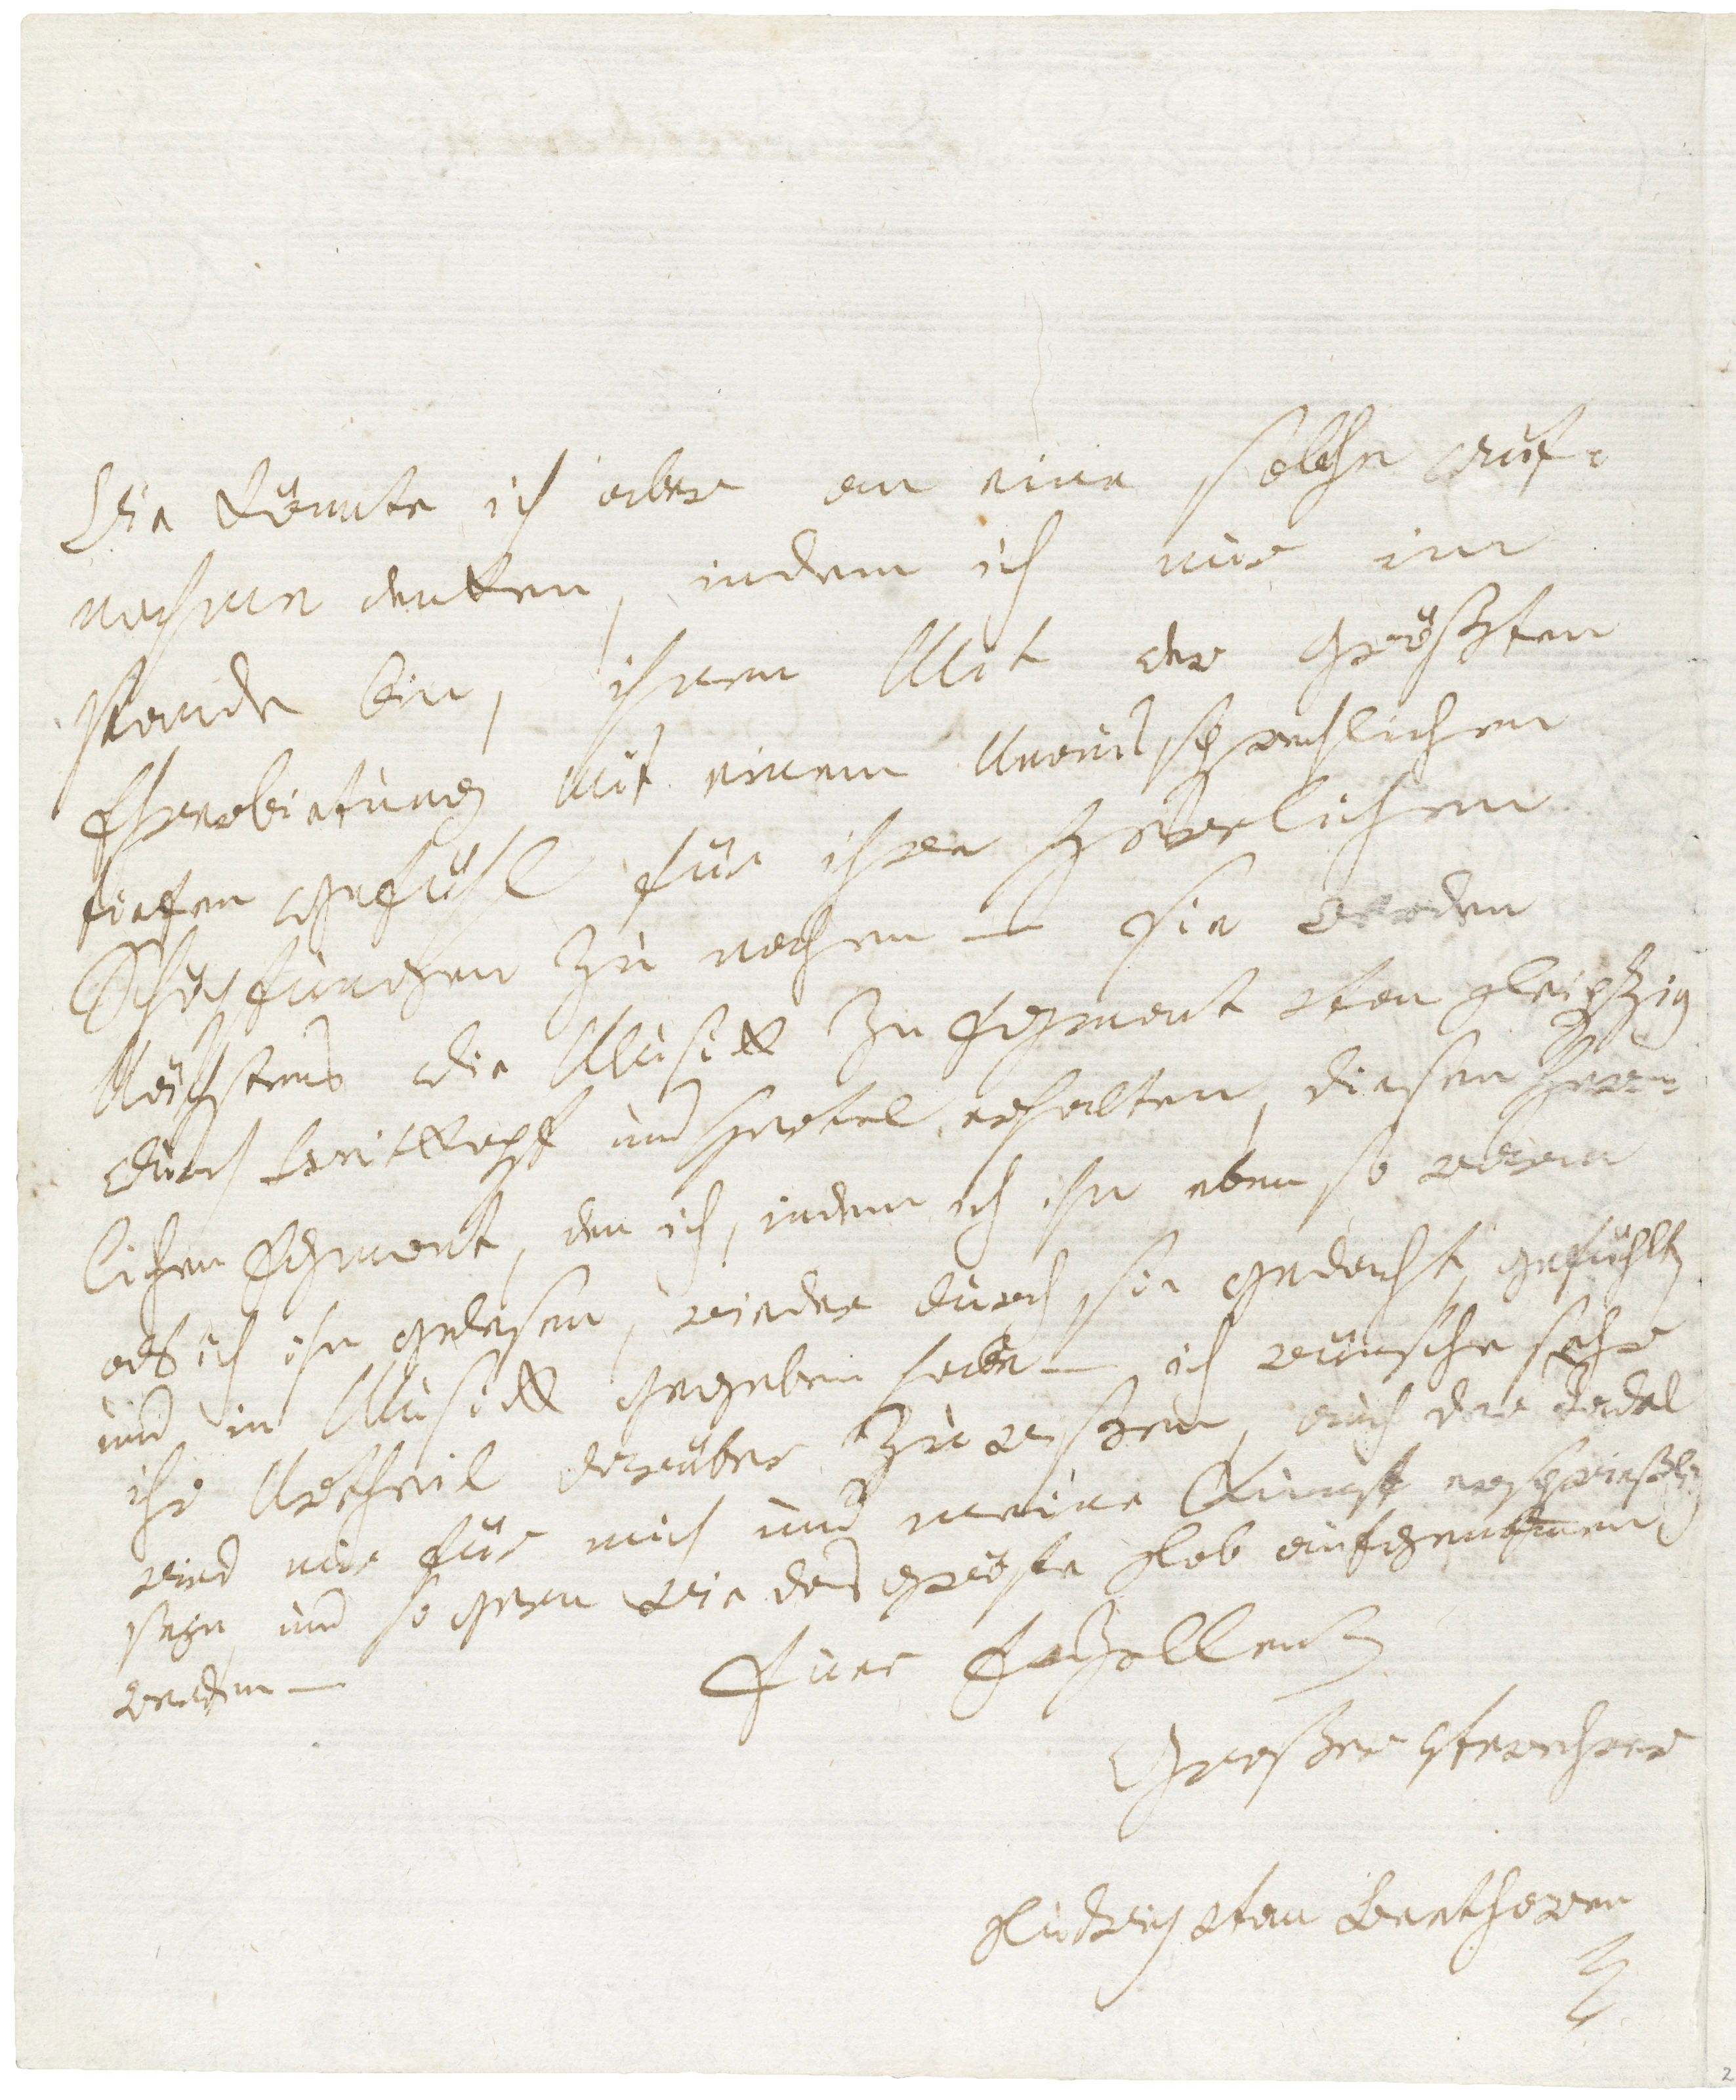 Wie könnte ich aber an eine solche auf=
nahme denken, indem ich nur im
stande bin, ihnen Mit der größten
Ehrerbietung Mit einem Unaussprechlichen
tiefen Gefühl für ihre Herrlichen
Schöpfungen zu nahen — sie werden
Nächstens die Musick zu Egmont von leipzig
durch Breitkopf und Hertel erhalten, diesen Herr=
lichen Egmont, den ich, indem ich ihn eben so warm
als ich ihn gelesen, wieder durch sie gedacht, gefühlt,
und in Musick gegeben habe — ich wünsche sehr
ihr Urtheil darüber zu wissen, auch der Tadel
wird mir für mich und meine Kunst ersprießlich
seyn, und so gern wie das größte Lob aufgenommen
werden —
Euer Exzellenz
Großer Verehrer
Ludwig van Beethowen
2